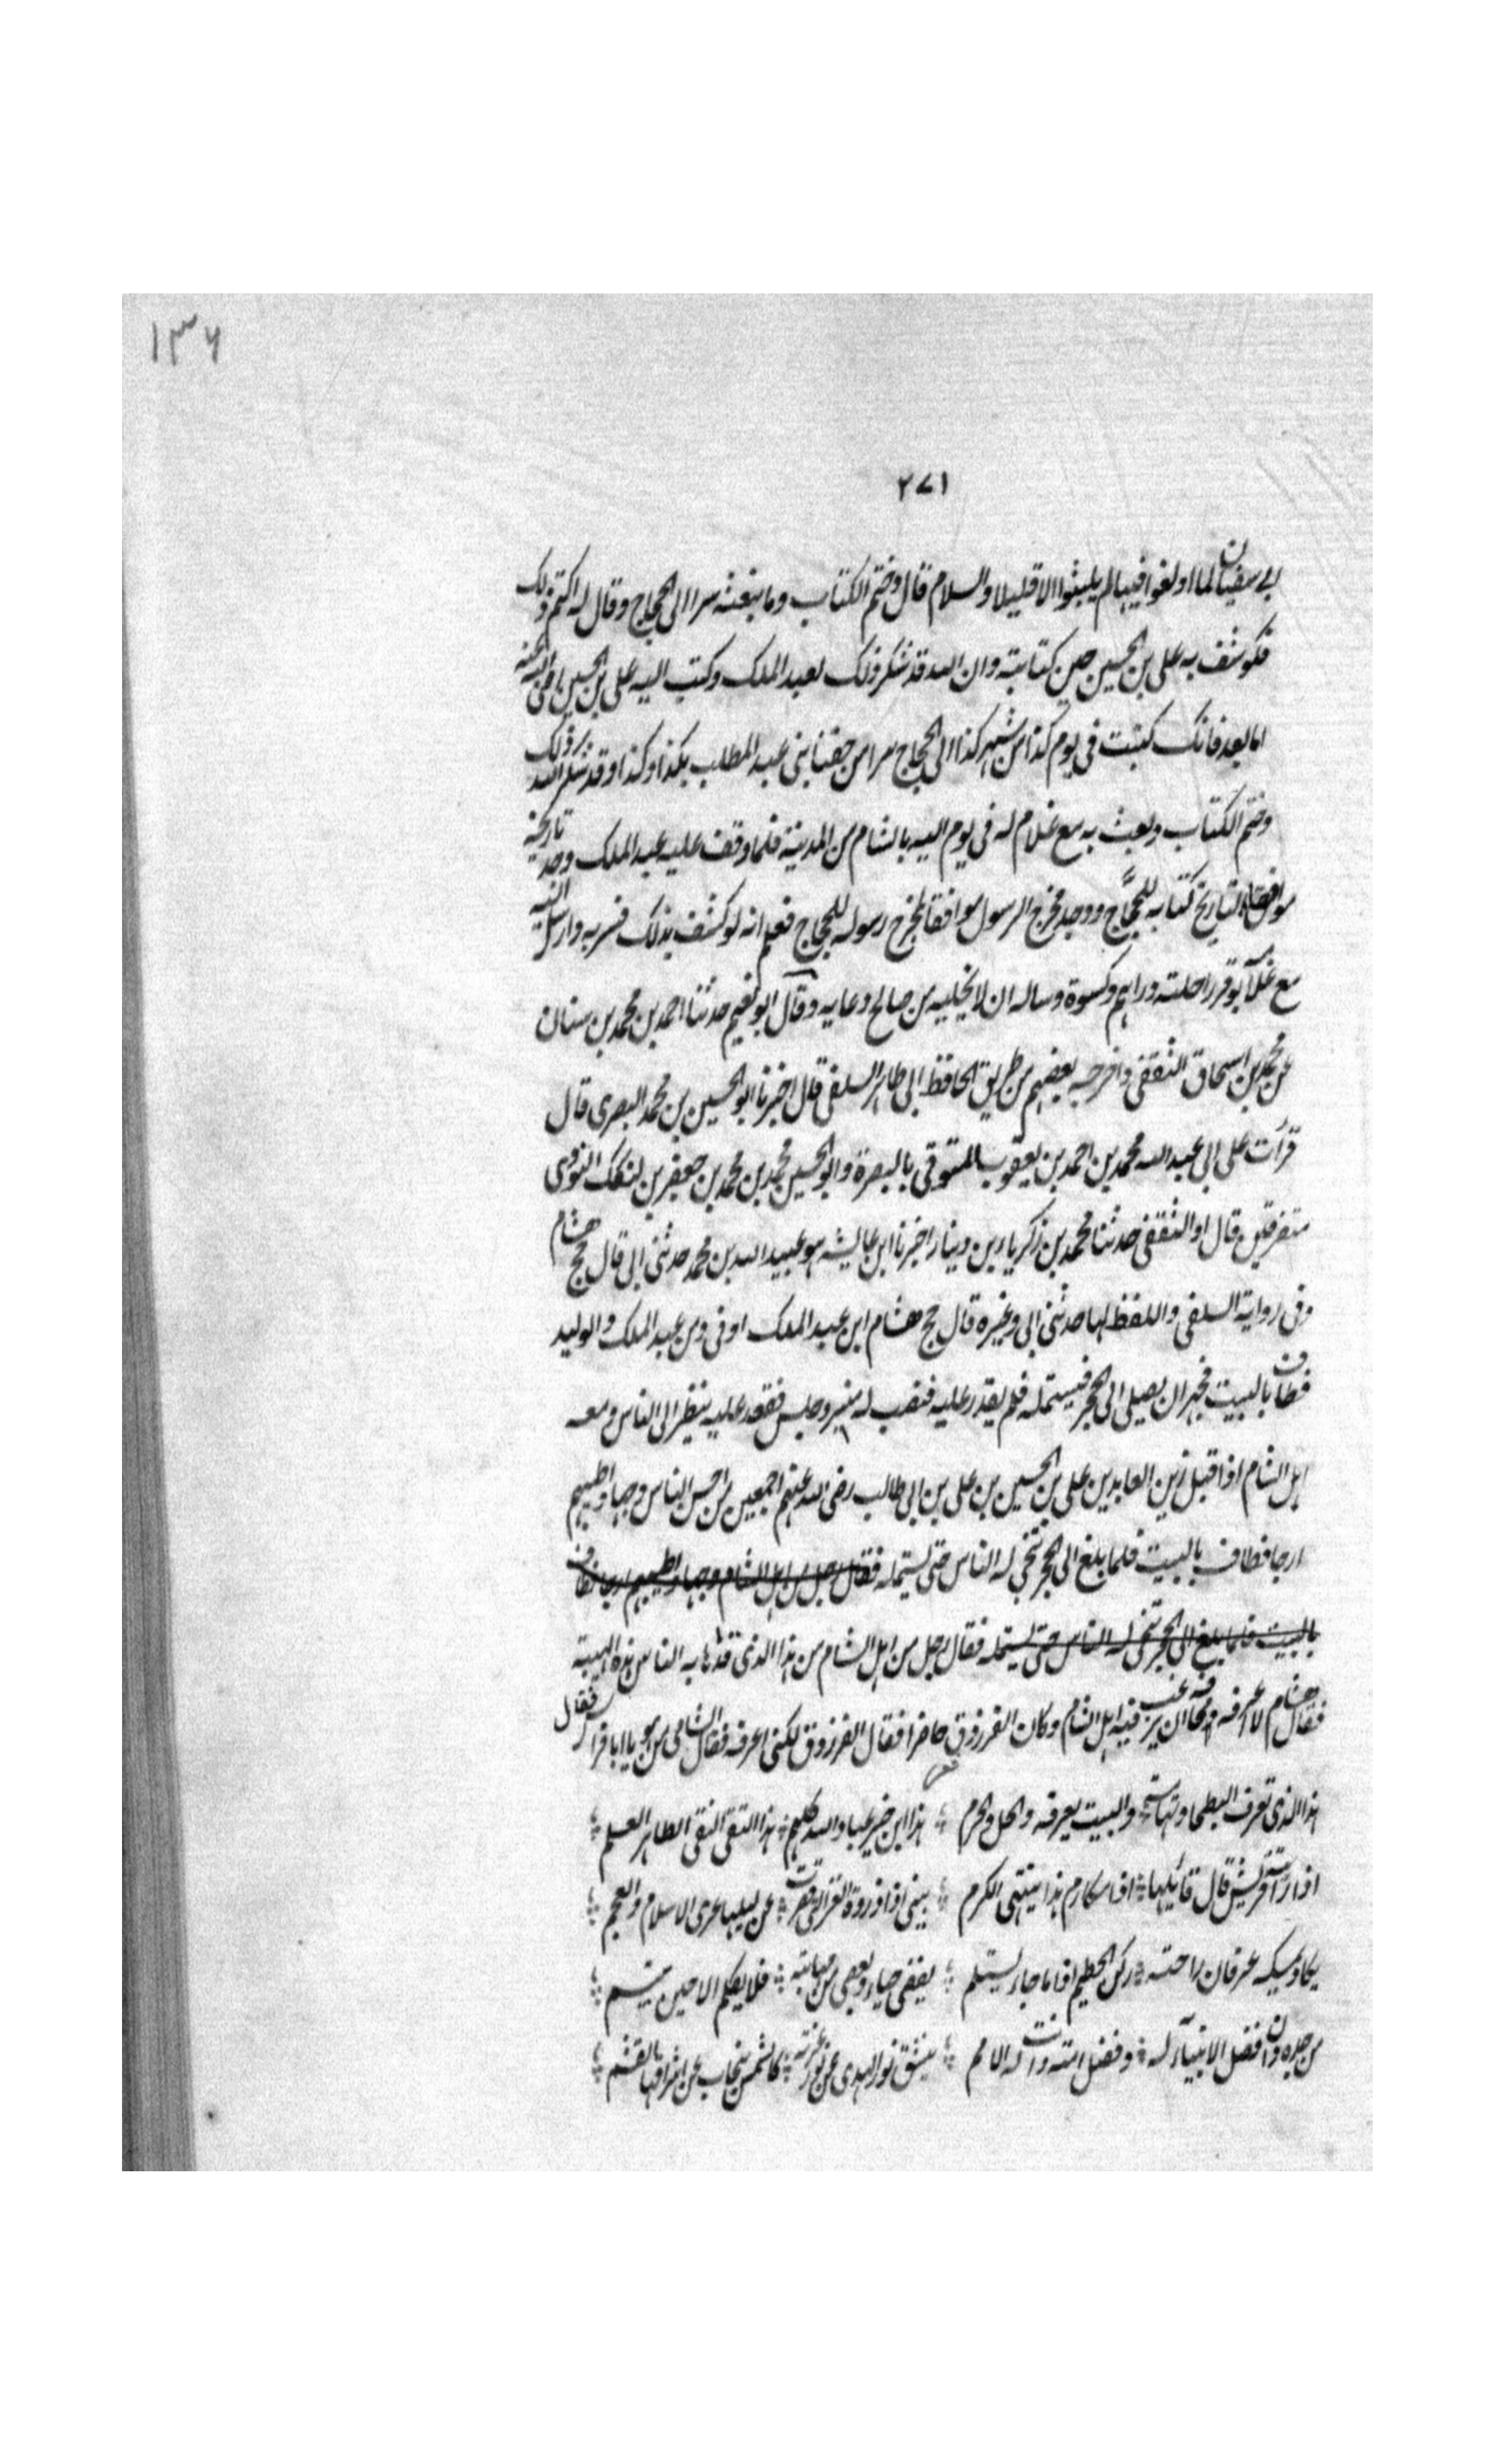 ١٣٦
٢٧١
بي سفيان لما اولغوا فيها لم يلبثوا الا قليلا والسلام قال وختم الكتاب وما بتعثه سرا الى الحجاج وقال له اكتم ذلك
فكوشف به على بن الحسين حين كتابته وان الله قد شكر ذلك لعبد الملك وكتب اليه على بن الحسين رضى الله عنه
اما بعد فانك كتبت فى يوم كذا من شهر كذا الى الحجاج سرا من حقنا بنى عبد المطلب بكذا وكذا وقد شكر الله ذلك
وختم الكتاب وبعث به مع غلام له فى يوم اليه بالشام من المدينة فلما وقف عليه عبد الملك وجد تاريخه
موافقا لتاريخ كتابه للحجاج ووجد مخرج الرسول موافقا لمخرج رسوله للحجاج فعلم انه لوكشف بذلك فسر به وارسل اليه
مع غلامه بوقر راحلته دراهم وكسوة وساله ان لا يخليه من صالح دعايه وقال ابو نعيم حدثنا احمد بن محمد بن سنان
عن محمد بن اسحاق الثقفى واخرجه بعضهم من طريق الحافظ ابى طاهر السلفى قال اخبرنا ابو الحسين بن محمد البصرى قال
قرأت على ابى عبد الله محمد بن احمد بن يعقوب المتوقى بالبصرة وابو الحسين محمد بن محمد بن جعفر بن لنكك النووى
متفرقين قال او الثقفى حدثنا محمد بن زكريا بن دينار اخبرنا ابن عايشه هو عبيد الله بن محمد حدثنى ابى قال حج هشام
وفى رواية السلفى واللفظ لها حدثنى ابى وغيره قال حج هشام ابن عبد الملك او فى زمن عبد الملك والوليد
فطاف بالبيت فجهر ان يصلى الى الحجر فيستمله فلم يقدر عليه فنصب له منبر وجلس فقعد عليه ينظر الى الناس ومعه
اهل الشام اذ اقبل زين العابدين على بن الحسين بن على بن ابى طالب رضى الله عنهم اجمعين من احسن الناس وجها واطيبهم
ارجا فطاف بالبيت فلما بلغ الى الحجر تنحى له الناس حتى يستمله فقال رجل من اهل الشام وجها واطيبهم ارجا فطاف
بالبيت فلما بلغ الى الحجر تنحى له الناس حتى يستمله فقال رجل من اهل الشام من هذا الذى قد هابه الناس هذه الهيبة
فقال هشام لا اعرفه مخافة ان يرغب فيه اهل الشام وكان الفرزوق حاضرا فقال الفرزوق لكنى اعرفه فقال الشامى من هو يا ابا فراس فقال
هذا الذى تعرف البطحا وتهاته والبيت يعرفه والحل والحرم هذا ابن خير عباد الله كلهم هذا التقى النقى الطاهر العلم
اذا راته قريش قال قائلها اف مكارم هذا ينتهى الكرم ينمى اذا ذروة العز التى قصرت عن نيلها عرى الاسلام والعجم
يكاد يمسكه عرفان راحته ركن الحطيم اذا ما جاء يستلم يغضى حياء ويغضى من مهابته فلا يكلم الا حين يبتسم
من جده دان فضل الانبيآء له وفضل امته دانت له الامم ينشق نور الهدى عن نور غرته كالشمس ينجاب عن اشراقها القشم